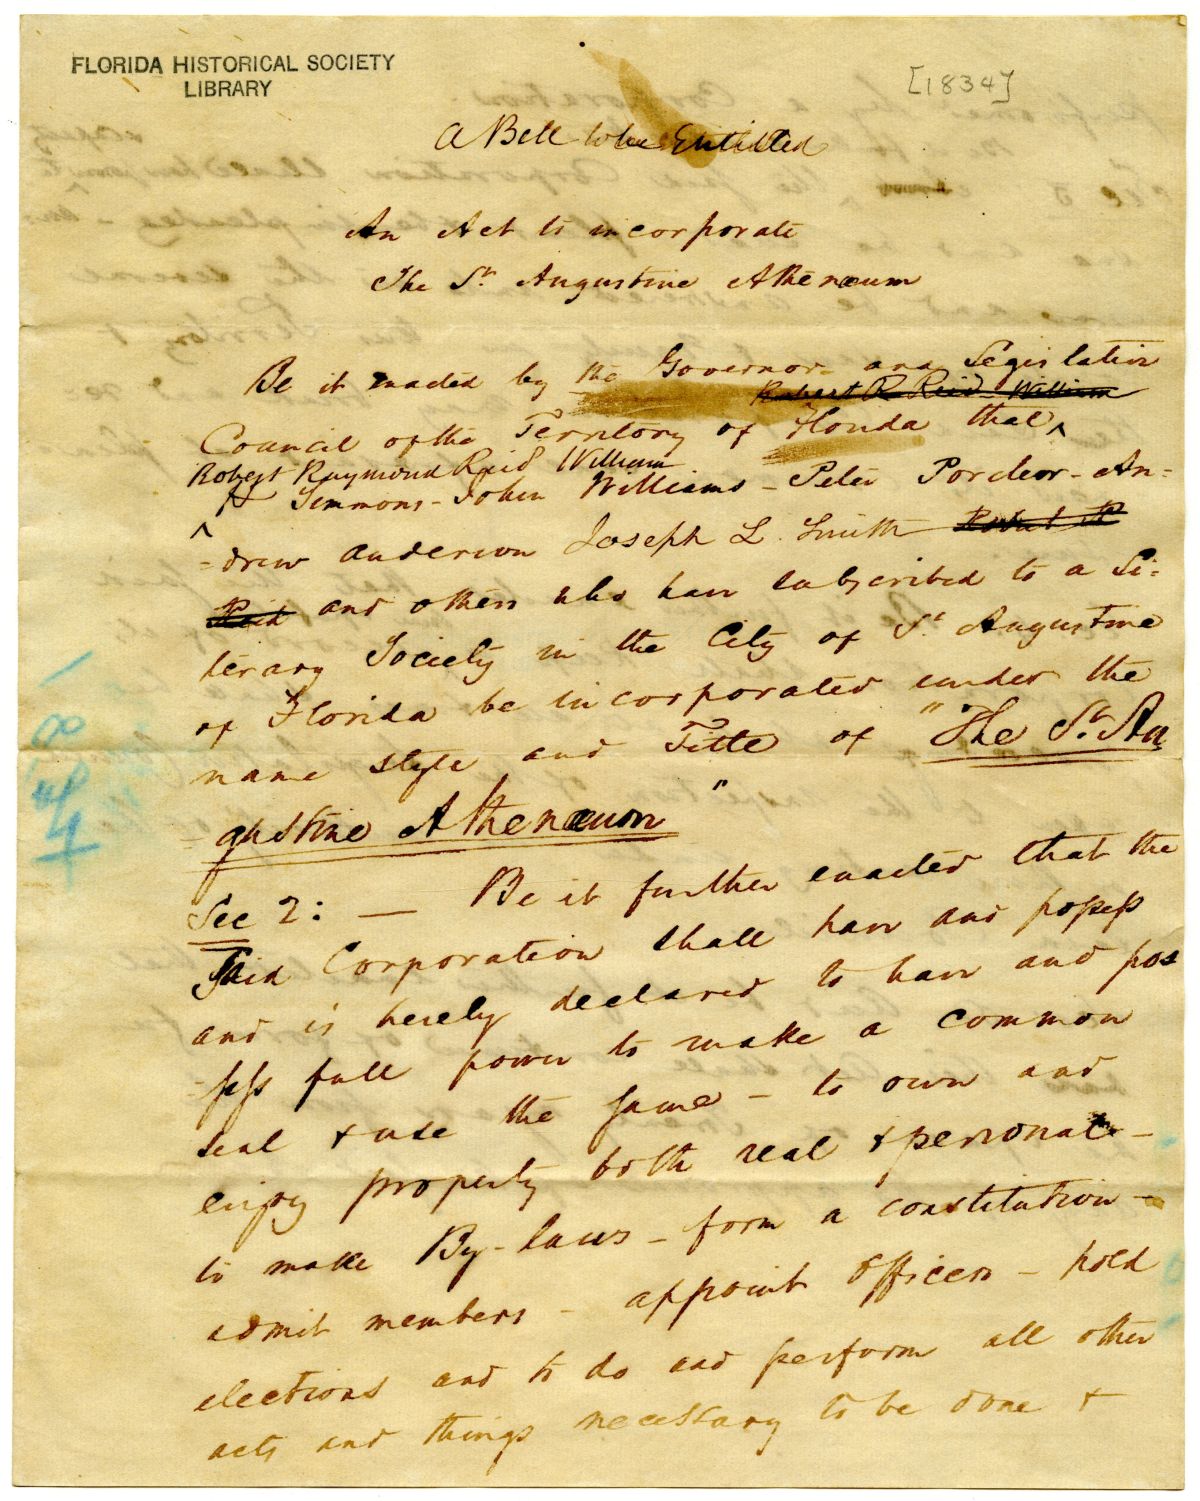 FLORIDA HISTORICAL SOCIETY
LIBRARY
[1834]
A Bill to be Entitled
An Act to incorporate
The St. Augustine Athenæum
Be it enacted by the Governor and Legislative
Robert R Reid William
Council of the Territory of Florida that ^
Robert Raymond Reid William
^ H Simmons - John Williams - Peter - An-
-drew Anderson Joseph L. Smith Robert R
Reid and others who have subscribed to a Li-
terary Society in the City of St. Augustine
of Florida be incorporated under the
name style and Title of "The St. Au
gustine Athenæum"
Sec 2: — Be it further enacted that the
Said Corporation shall have and possess
and is hereby declared to have and pos
-sess full power to make a common
seal & use the same - to own and
enjoy property both real & personal -
to make By-laws - form a constitution -
admit members - appoint officers - hold
elections and to do and perform all other
acts and things necessary to be done &